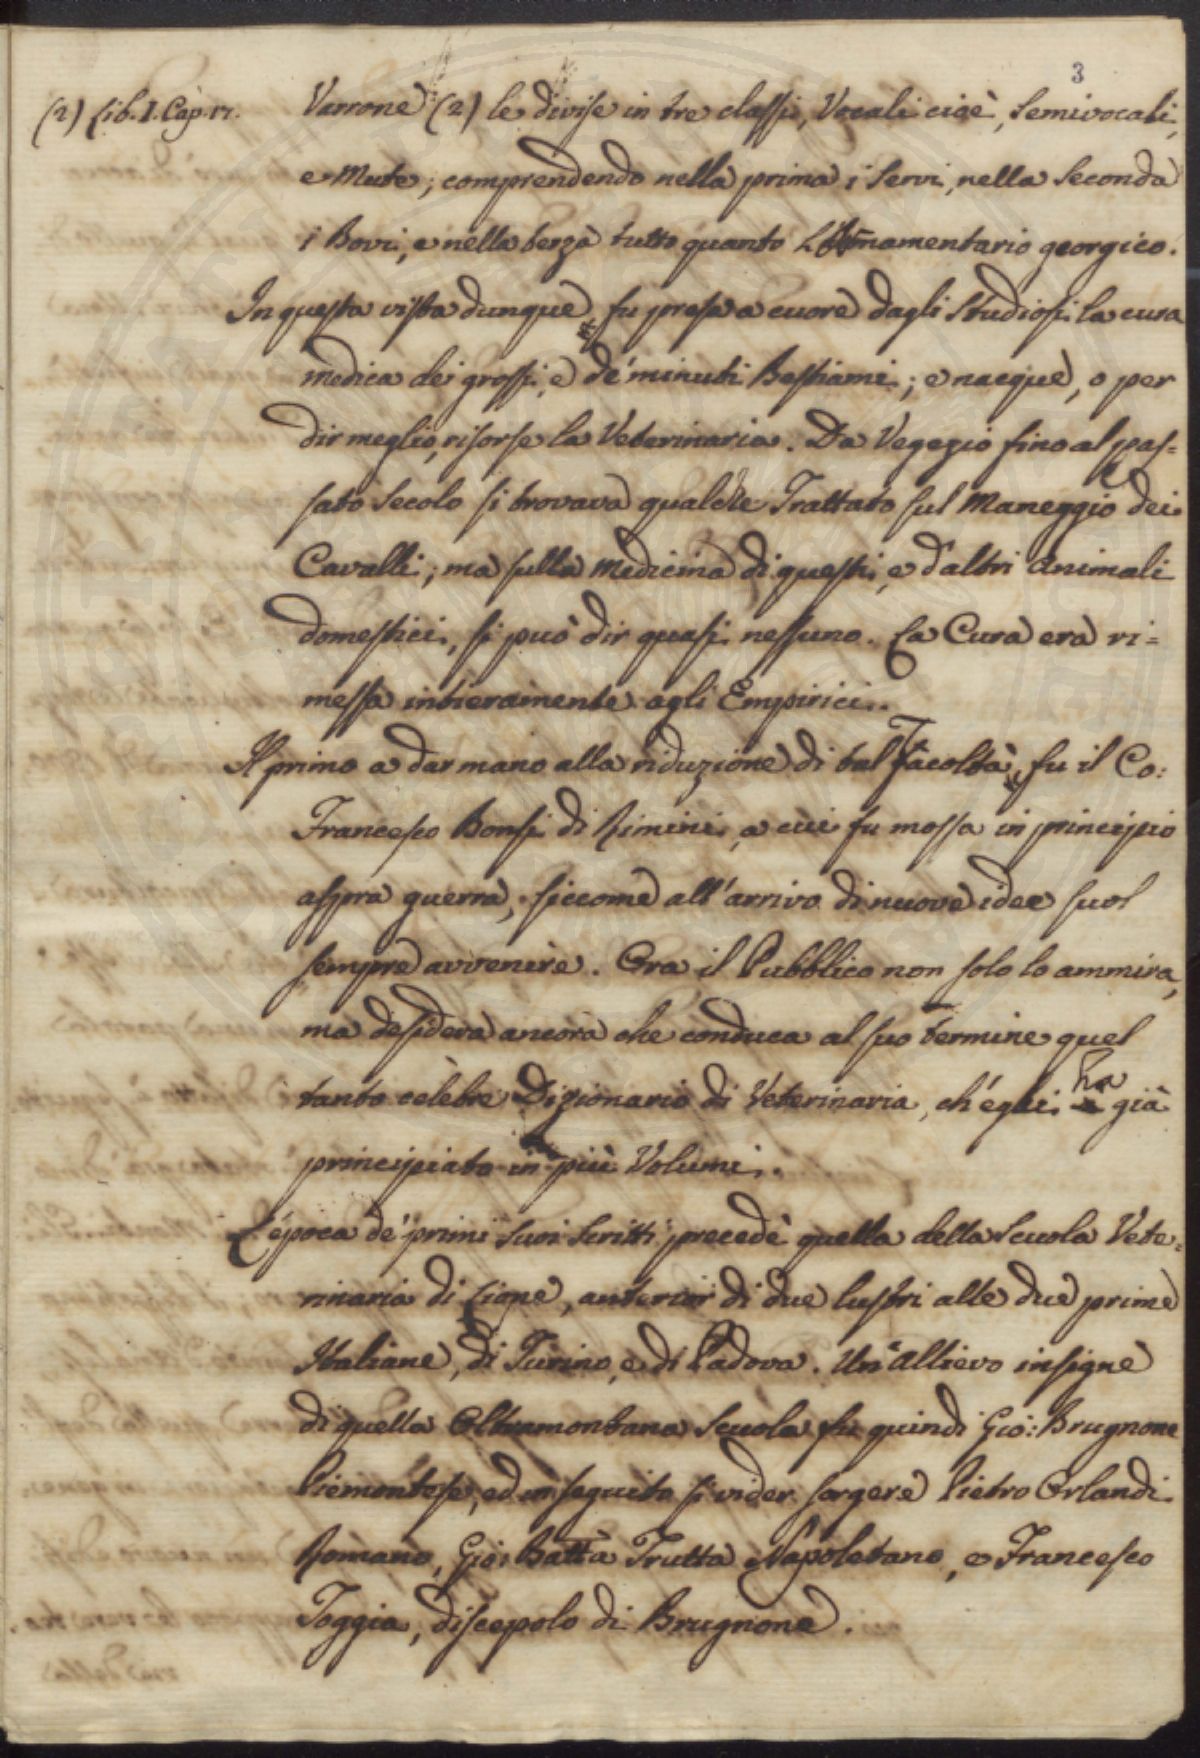 3
(2) Lib. I. Cap. 17.
Varrone (2) le divise in tre classi, Vocali cioè, Semivocali,
e Mute; comprendendo nella prima i Servi, nella Seconda
i Bovi, e nella terza tutto quanto georgico.
In questa vista dunque, fu presa a cuore dagli Studiosi la cura
medica dei grossi, e de' minuti Bestiami; e nacque, o per
dir meglio, risorse la Veterinaria. Da Vegezio fino al pas=
sato Secolo si trovava qualche Trattato sul Maneggio dei
Cavalli; ma sulla Medicina di questi, e d'altri Animali
domestici, si può dir quasi nessuno. La Cura era ri=
messa intieramente agli Empirici.
Il primo a dar mano alla riduzione di tal Facoltà, fu il Co:
Francesco Bonsi di Rimini, a cui fu mossa in principio
aspra guerra, siccome all'arrivo di nuove idee suol
sempre avvenire. Ora il Pubblico non solo lo ammira,
ma desidera ancora che conduca al suo termine quel
tanto cèlebre Dizionario di Veterinaria, ch'egli ha già
principiato in più Volumi.
L'época de' primi suoi Scritti precedè quella della Scuola Vete=
rinaria di Lione, anterior di due lustri alle due prime
Italiane, di Turino, e di Padova. Un'Allievo insigne
di quella Oltramontana Scuola fu quindi Gio: Brugnone
Piemontese, ed in seguito si vider sorgere Pietro Orlandi
Romano, Gio: Batta Trutta Napoletano, e Francesco
Toggia, discepolo di Brugnone.